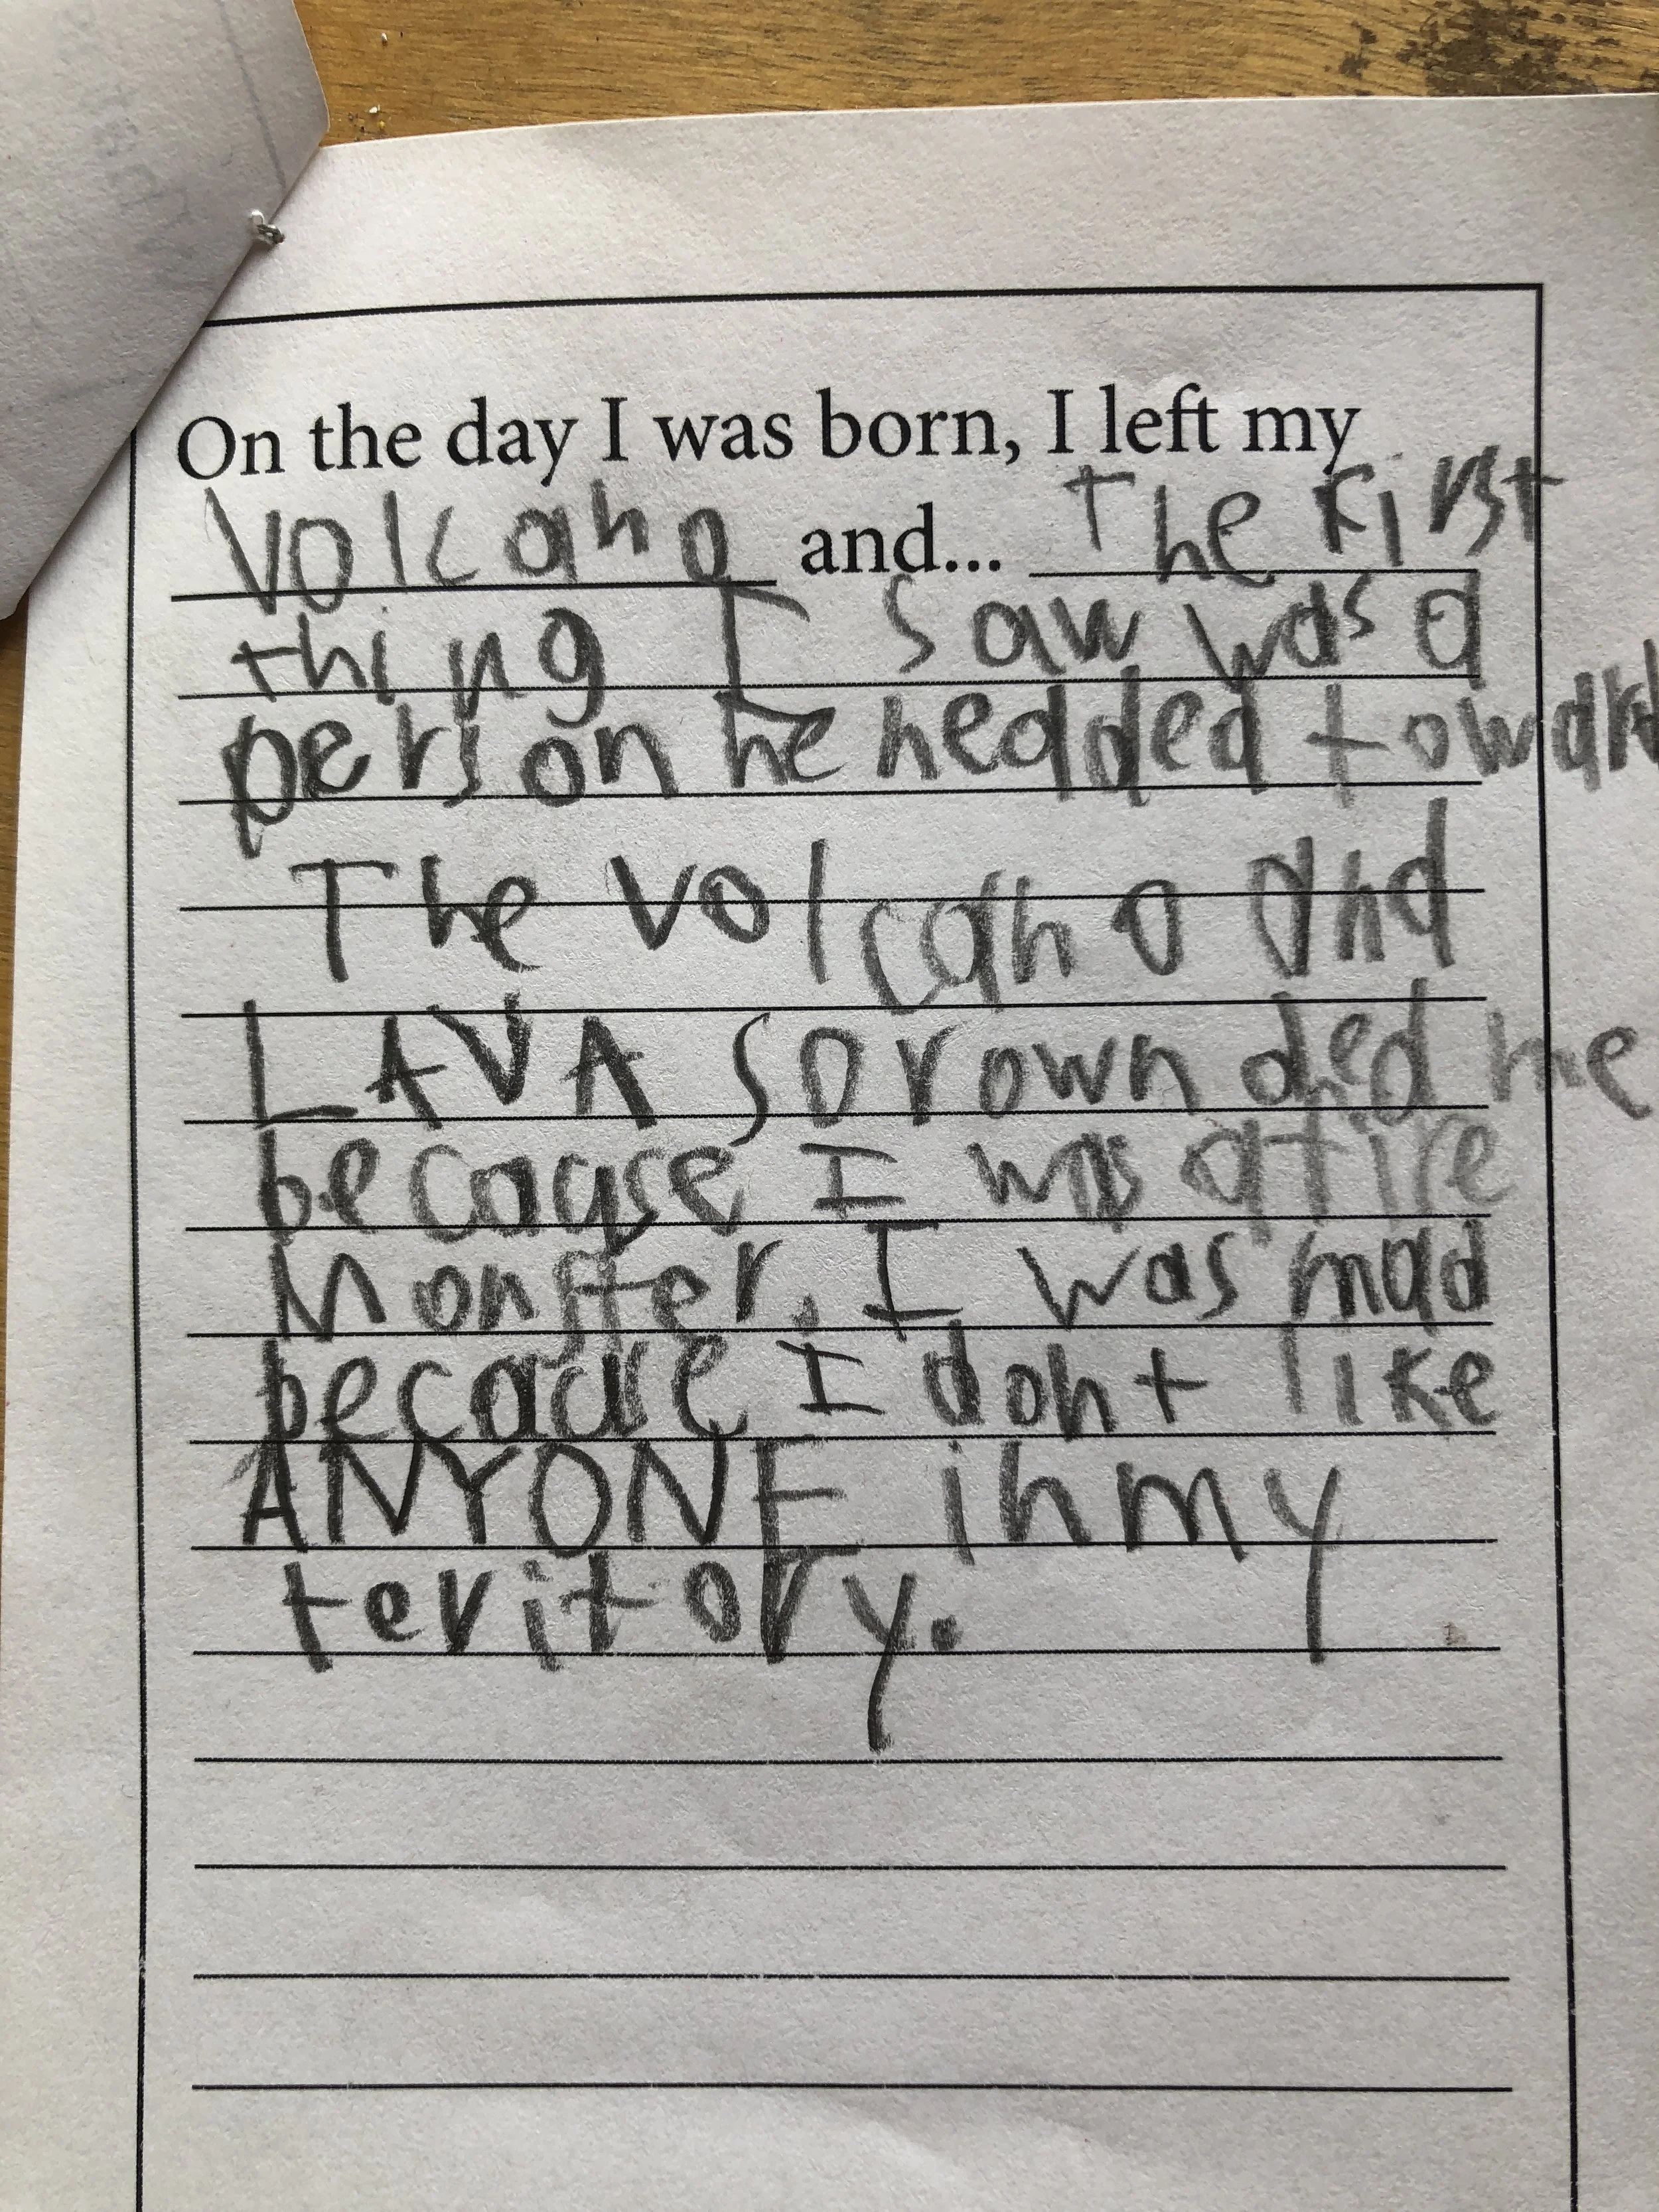 On the day I was born, I left my
Volcano and... The First
thing I saw was a
person he hedded toward
The volcano and
LAVA sorownded me
because I was a fire
Monster. I was mad
because I dont like
ANYONE in my
teritory.